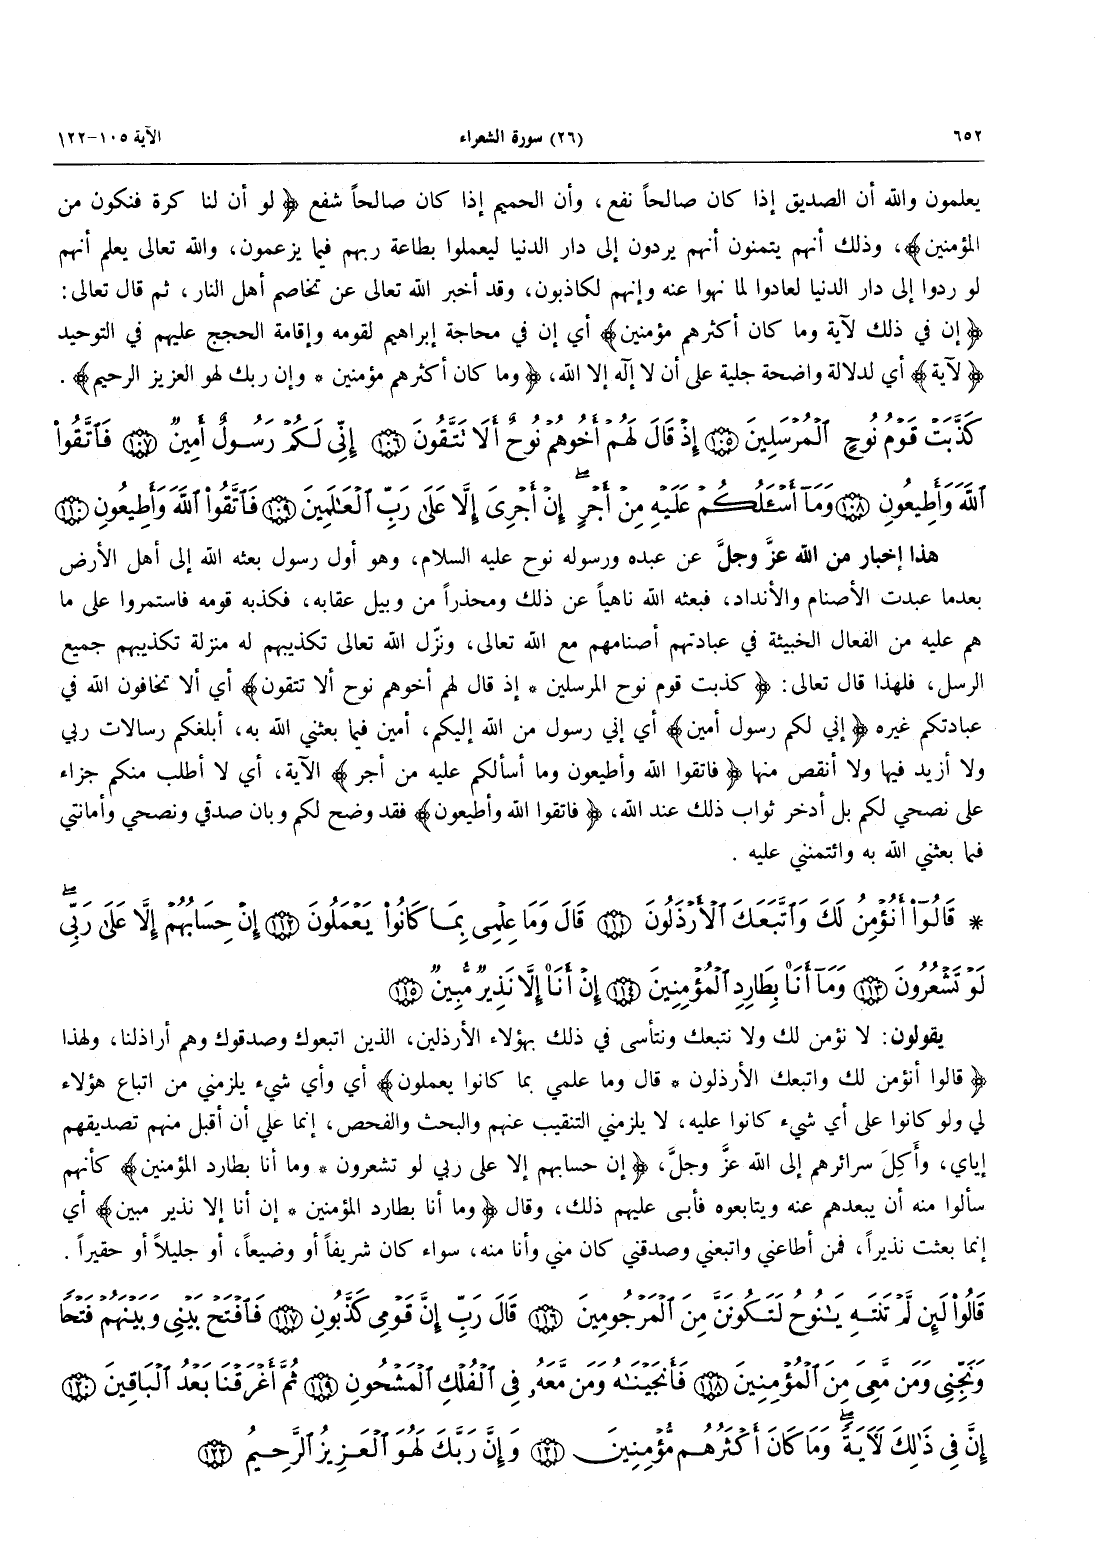 ٦٥٢ (٢٦) سورة الشعراء الآية ١٠٥-١٢٢
يعلمون والله أن الصديق إذا كان صالحاً نفع، وأن الحميم إذا كان صالحاً شفع ﴿ لو أن لنا كرة فنكون من
المؤمنين﴾، وذلك أنهم يتمنون أنهم يردون إلى دار الدنيا ليعملوا بطاعة ربهم فيما يزعمون، والله تعالى يعلم أنهم
لو ردوا إلى دار الدنيا لعادوا لما نهوا عنه وإنهم لكاذبون، وقد أخبر الله تعالى عن تخاصم أهل النار، ثم قال تعالى:
﴿ إن في ذلك لآية وما كان أكثرهم مؤمنين﴾ أي إن في محاجة إبراهيم لقومه وإقامة الحجج عليهم في التوحيد
﴿ لآية﴾ أي لدلالة واضحة جلية على أن لا إلٓه إلا الله، ﴿ وما كان أكثرهم مؤمنين * وإن ربك لهو العزيز الرحيم﴾ .
كَذَّبَتْ قَوْمُ نُوحٍ ٱلْمُرْسَلِينَ ١٠٥ إِذْ قَالَ لَهُمْ أَخُوهُمْ نُوحٌ أَلَا تَتَّقُونَ ١٠٦ إِنِّى لَكُمْ رَسُولٌ أَمِينٌ ١٠٧ فَٱتَّقُوا۟
ٱللَّهَ وَأَطِيعُونِ ١٠٨ وَمَآ أَسْـَٔلُكُمْ عَلَيْهِ مِنْ أَجْرٍ ۖ إِنْ أَجْرِىَ إِلَّا عَلَىٰ رَبِّ ٱلْعَـٰلَمِينَ ١٠٩ فَٱتَّقُوا۟ ٱللَّهَ وَأَطِيعُونِ ١١٠
هذا إخبار من الله عزَّ وجلَّ عن عبده ورسوله نوح عليه السلام، وهو أول رسول بعثه الله إلى أهل الأرض
بعدما عبدت الأصنام والأنداد، فبعثه الله ناهياً عن ذلك ومحذراً من وبيل عقابه، فكذبه قومه فاستمروا على ما
هم عليه من الفعال الخبيثة في عبادتهم أصنامهم مع الله تعالى، ونزّل الله تعالى تكذيبهم له منزلة تكذيبهم جميع
الرسل، فلهذا قال تعالى: ﴿ كذبت قوم نوح المرسلين * إذ قال لهم أخوهم نوح ألا تتقون﴾ أي ألا تخافون الله في
عبادتكم غيره ﴿ إني لكم رسول أمين﴾ أي إني رسول من الله إليكم، أمين فيما بعثني الله به، أبلغكم رسالات ربي
ولا أزيد فيها ولا أنقص منها ﴿ فاتقوا الله وأطيعون وما أسألكم عليه من أجر ﴾ الآية، أي لا أطلب منكم جزاء
على نصحي لكم بل أدخر ثواب ذلك عند الله، ﴿ فاتقوا الله وأطيعون﴾ فقد وضح لكم وبان صدقي ونصحي وأمانتي
فيما بعثني الله به وائتمنني عليه .
* قَالُوٓا۟ أَنُؤْمِنُ لَكَ وَٱتَّبَعَكَ ٱلْأَرْذَلُونَ ١١١ قَالَ وَمَا عِلْمِى بِمَا كَانُوا۟ يَعْمَلُونَ ١١٢ إِنْ حِسَابُهُمْ إِلَّا عَلَىٰ رَبِّى ۖ
لَوْ تَشْعُرُونَ ١١٣ وَمَآ أَنَا۠ بِطَارِدِ ٱلْمُؤْمِنِينَ ١١٤ إِنْ أَنَا۠ إِلَّا نَذِيرٌ مُّبِينٌ ١١٥
يقولون: لا نؤمن لك ولا نتبعك ونتأسى في ذلك بهؤلاء الأرذلين، الذين اتبعوك وصدقوك وهم أراذلنا، ولهذا
﴿ قالوا أنؤمن لك واتبعك الأرذلون * قال وما علمي بما كانوا يعملون﴾ أي وأي شيء يلزمني من اتباع هؤلاء
لي ولو كانوا على أي شيء كانوا عليه، لا يلزمني التنقيب عنهم والبحث والفحص، إنما علي أن أقبل منهم تصديقهم
إياي، وأَكِلَ سرائرهم إلى الله عزَّ وجلَّ، ﴿ إن حسابهم إلا على ربي لو تشعرون * وما أنا بطارد المؤمنين﴾ كأنهم
سألوا منه أن يبعدهم عنه ويتابعوه فأبى عليهم ذلك، وقال ﴿ وما أنا بطارد المؤمنين * إن أنا إلا نذير مبين﴾ أي
إنما بعثت نذيراً، فمن أطاعني واتبعني وصدقني كان مني وأنا منه، سواء كان شريفاً أو وضيعاً، أو جليلاً أو حقيراً .
قَالُوا۟ لَئِن لَّمْ تَنتَهِ يَـٰنُوحُ لَتَكُونَنَّ مِنَ ٱلْمَرْجُومِينَ ١١٦ قَالَ رَبِّ إِنَّ قَوْمِى كَذَّبُونِ ١١٧ فَٱفْتَحْ بَيْنِى وَبَيْنَهُمْ فَتْحًا
وَنَجِّنِى وَمَن مَّعِىَ مِنَ ٱلْمُؤْمِنِينَ ١١٨ فَأَنجَيْنَـٰهُ وَمَن مَّعَهُۥ فِى ٱلْفُلْكِ ٱلْمَشْحُونِ ١١٩ ثُمَّ أَغْرَقْنَا بَعْدُ ٱلْبَاقِينَ ١٢٠
إِنَّ فِى ذَٰلِكَ لَـَٔايَةً ۖ وَمَا كَانَ أَكْثَرُهُم مُّؤْمِنِينَ ١٢١ وَإِنَّ رَبَّكَ لَهُوَ ٱلْعَزِيزُ ٱلرَّحِيمُ ١٢٢